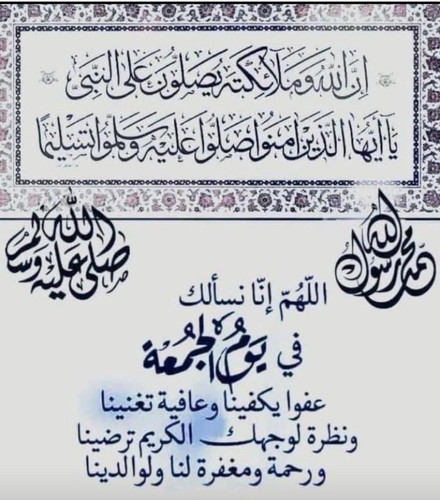 إن الله وملائكته يصلون على النبي
يا أيها الذين آمنوا صلوا عليه وسلموا تسليما
محمد رسول الله
صلى الله عليه وسلم
اللهم إنا نسألك
في يوم الجمعة
عفوا يكفينا وعافية تغنينا
ونظرة لوجهك الكريم ترضينا
ورحمة ومغفرة لنا ولوالدينا